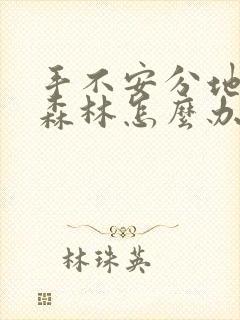 手不安分地
森林怎麼办
林珠英